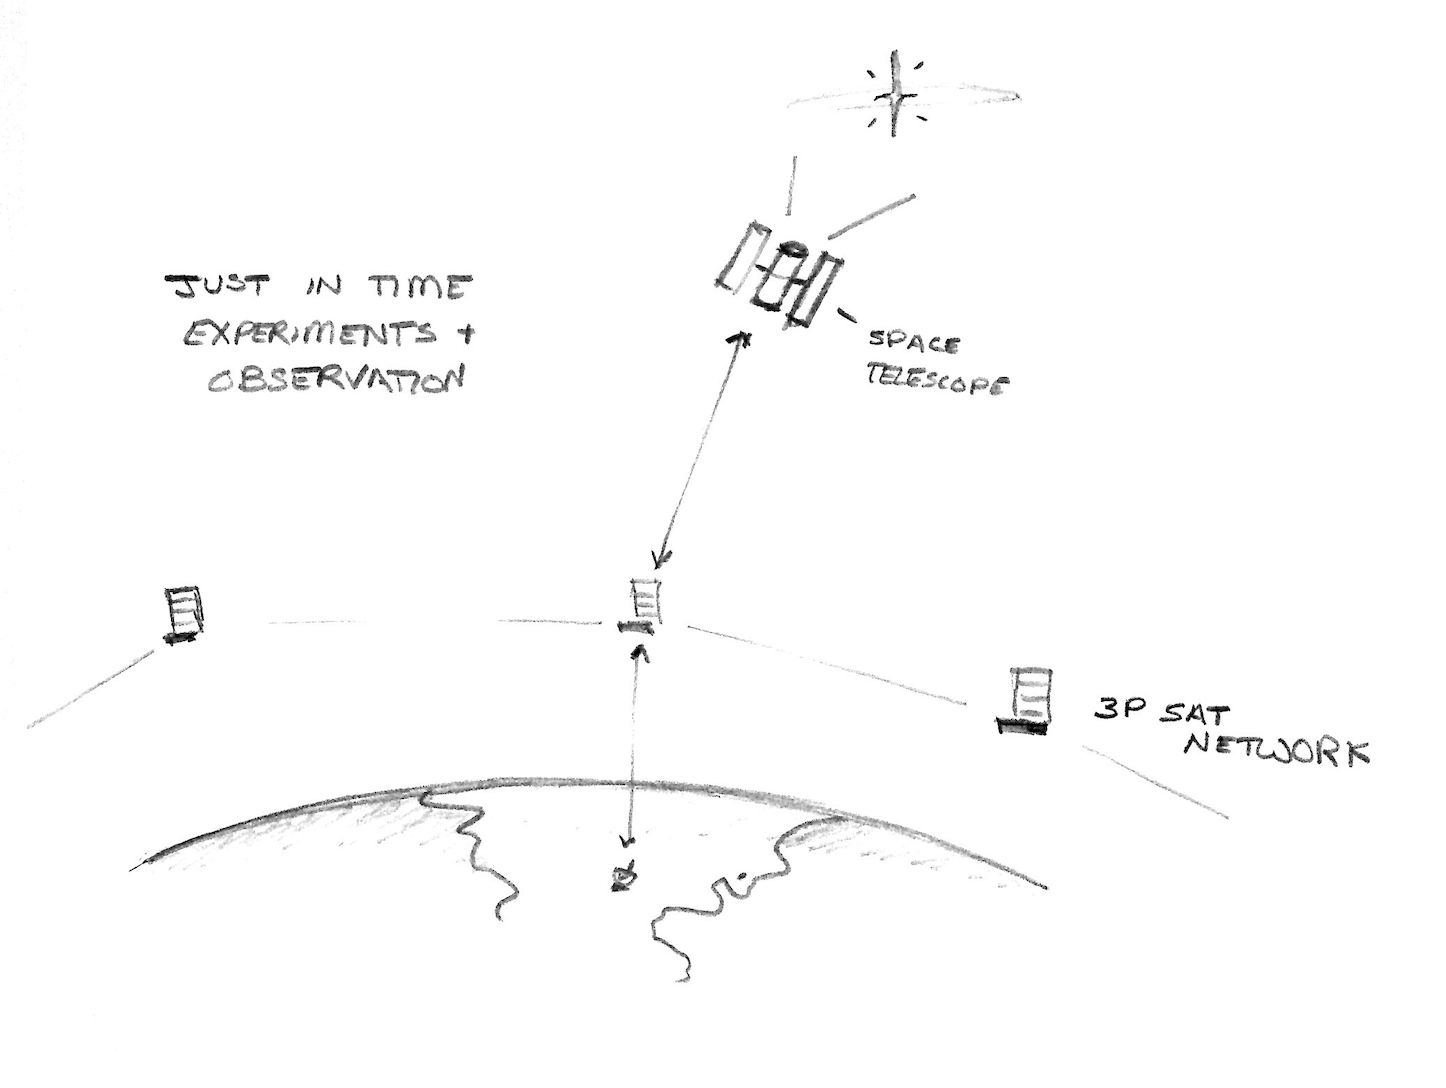 JUST IN TIME
EXPERIMENTS +
OBSERVATION
SPACE
TELESCOPE
3P SAT
NETWORK